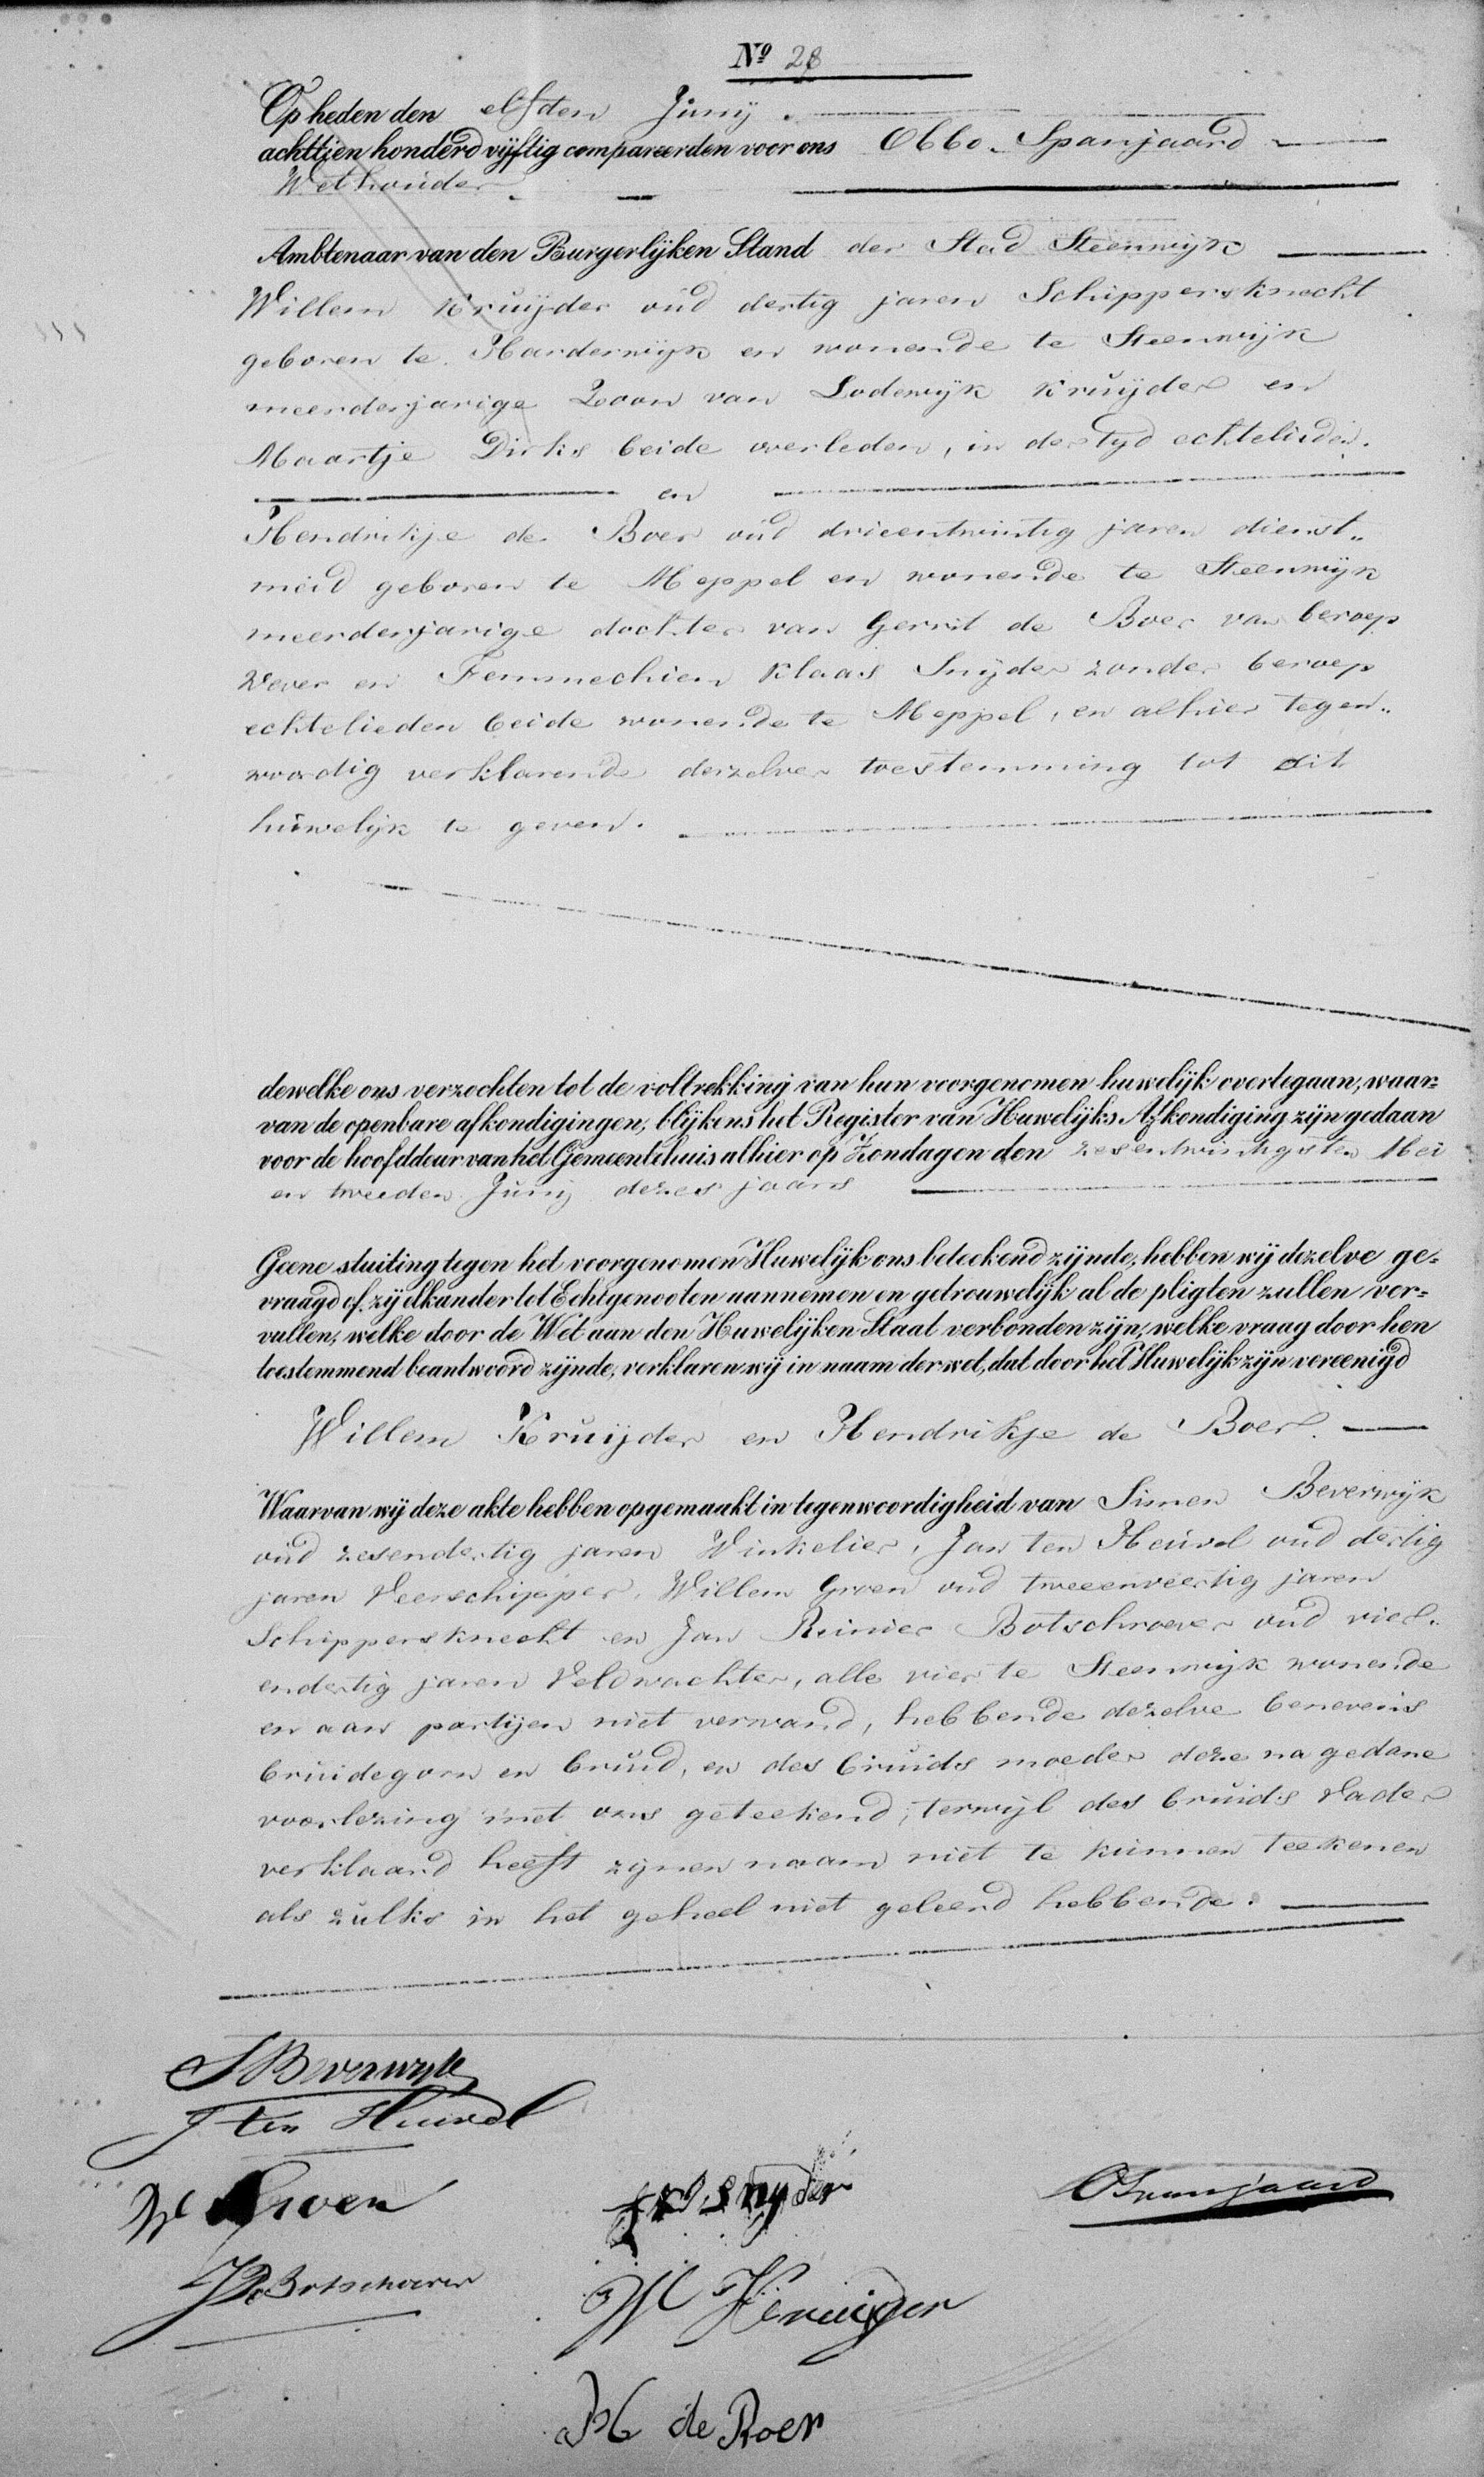 Nº 28
Op heden den elfden Junij
achttien honderd vijftig compareerden voor ons Obbo Spanjaard
Wethouder
Ambtenaar van den Burgerlijken Stand der Stad Steenwijk
Willem Kruijder oud dertig jaren Schippersknecht
geboren te Harderwijk en wonende te Steenwijk
meerderjarige Zoon van Lodewijk Kruijder en
Maartje Dirks beide overleden, in der tijd echtelieden.
en
Hendrikje de Boer oud drieentwintig jaren dienst„
meid geboren te Meppel en wonende te Steenwijk
meerderjarige dochter van Gerrit de Boer van beroep
Wever en Femmechien Klaas Snijder zonder beroep
echtelieden beide wonende te Meppel, en alhier tegen„
woordig verklarende derzelver toestemming tot dit
huwelijk te geven.
dewelke ons verzochten tot de voltrekking van hun voorgenomen huwelijk overtegaan, waar=
van de openbare afkondigingen, blijkens het Register van Huwelijks Afkondiging zijn gedaan
voor de hoofddeur van het Gemeentehuis alhier op Zondagen den zesentwintigsten Mei
en tweeden Junij dezes jaars
Geene stuiting tegen het voorgenomen Huwelijk ons beteekend zijnde, hebben wij dezelve ge=
vraagd of zij elkander tot Echtgenooten aannemen en getrouwelijk al de pligten zullen ver=
vullen, welke door de Wet aan den Huwelijken Staat verbonden zijn, welke vraag door hen
toestemmend beantwoord zijnde, verklaren wij in naam der wet, dat door het Huwelijk zijn vereenigd
Willem Kruijder en Hendrikje de Boer.
Waarvan wij deze akte hebben opgemaakt in tegenwoordigheid van Simen Beverwijk
oud zesendertig jaren Winkelier, Jan ten Heuvel oud dertig
jaren Veerschipper, Willem Groen oud tweeenveertig jaren
Schippersknecht en Jan Reinier Botschroever oud vier„
endertig jaren Veldwachter, alle vier te Steenwijk wonende
en aan partijen niet verwand, hebbende dezelve benevens
bruidegom en bruid, en des bruids moeder deze na gedane
voorlezing met ons geteekend, terwijl des bruids Vader
verklaard heeft zijnen naam niet te kunnen teekenen
als zulks in het geheel niet geleerd hebbende.
S Beverwijk
J ten Heuvel
W Groen
F K Snyder
O Spanjaard
JR Botschroever
W Kruijder
H de Boer